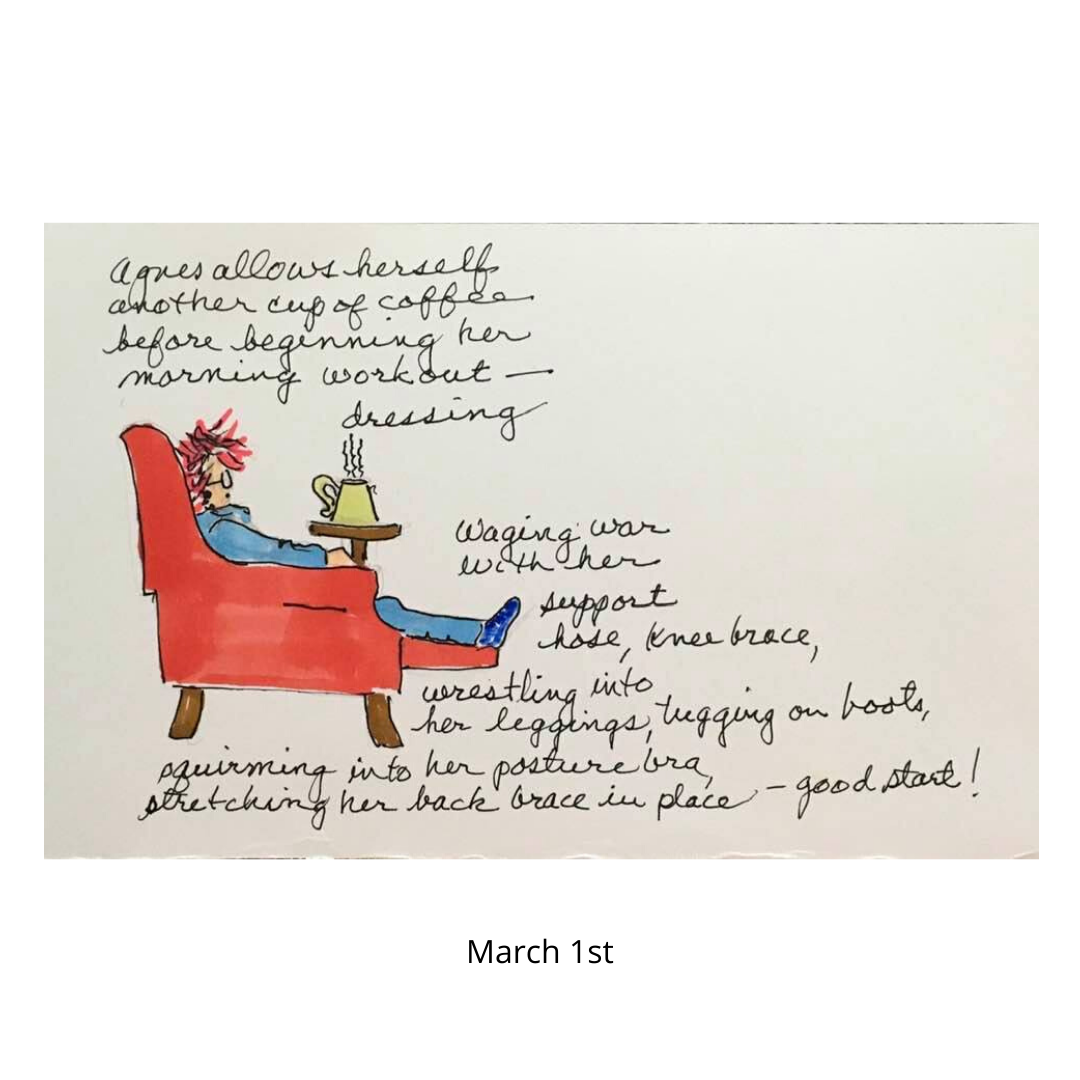 Agnes allows herself
another cup of coffee
before beginning her
morning workout —
dressing
Waging war
with her
support
hose, knee brace,
wrestling into
her leggings, tugging on boots,
squirming into her posture bra,
stretching her back brace in place — good start!
March 1st